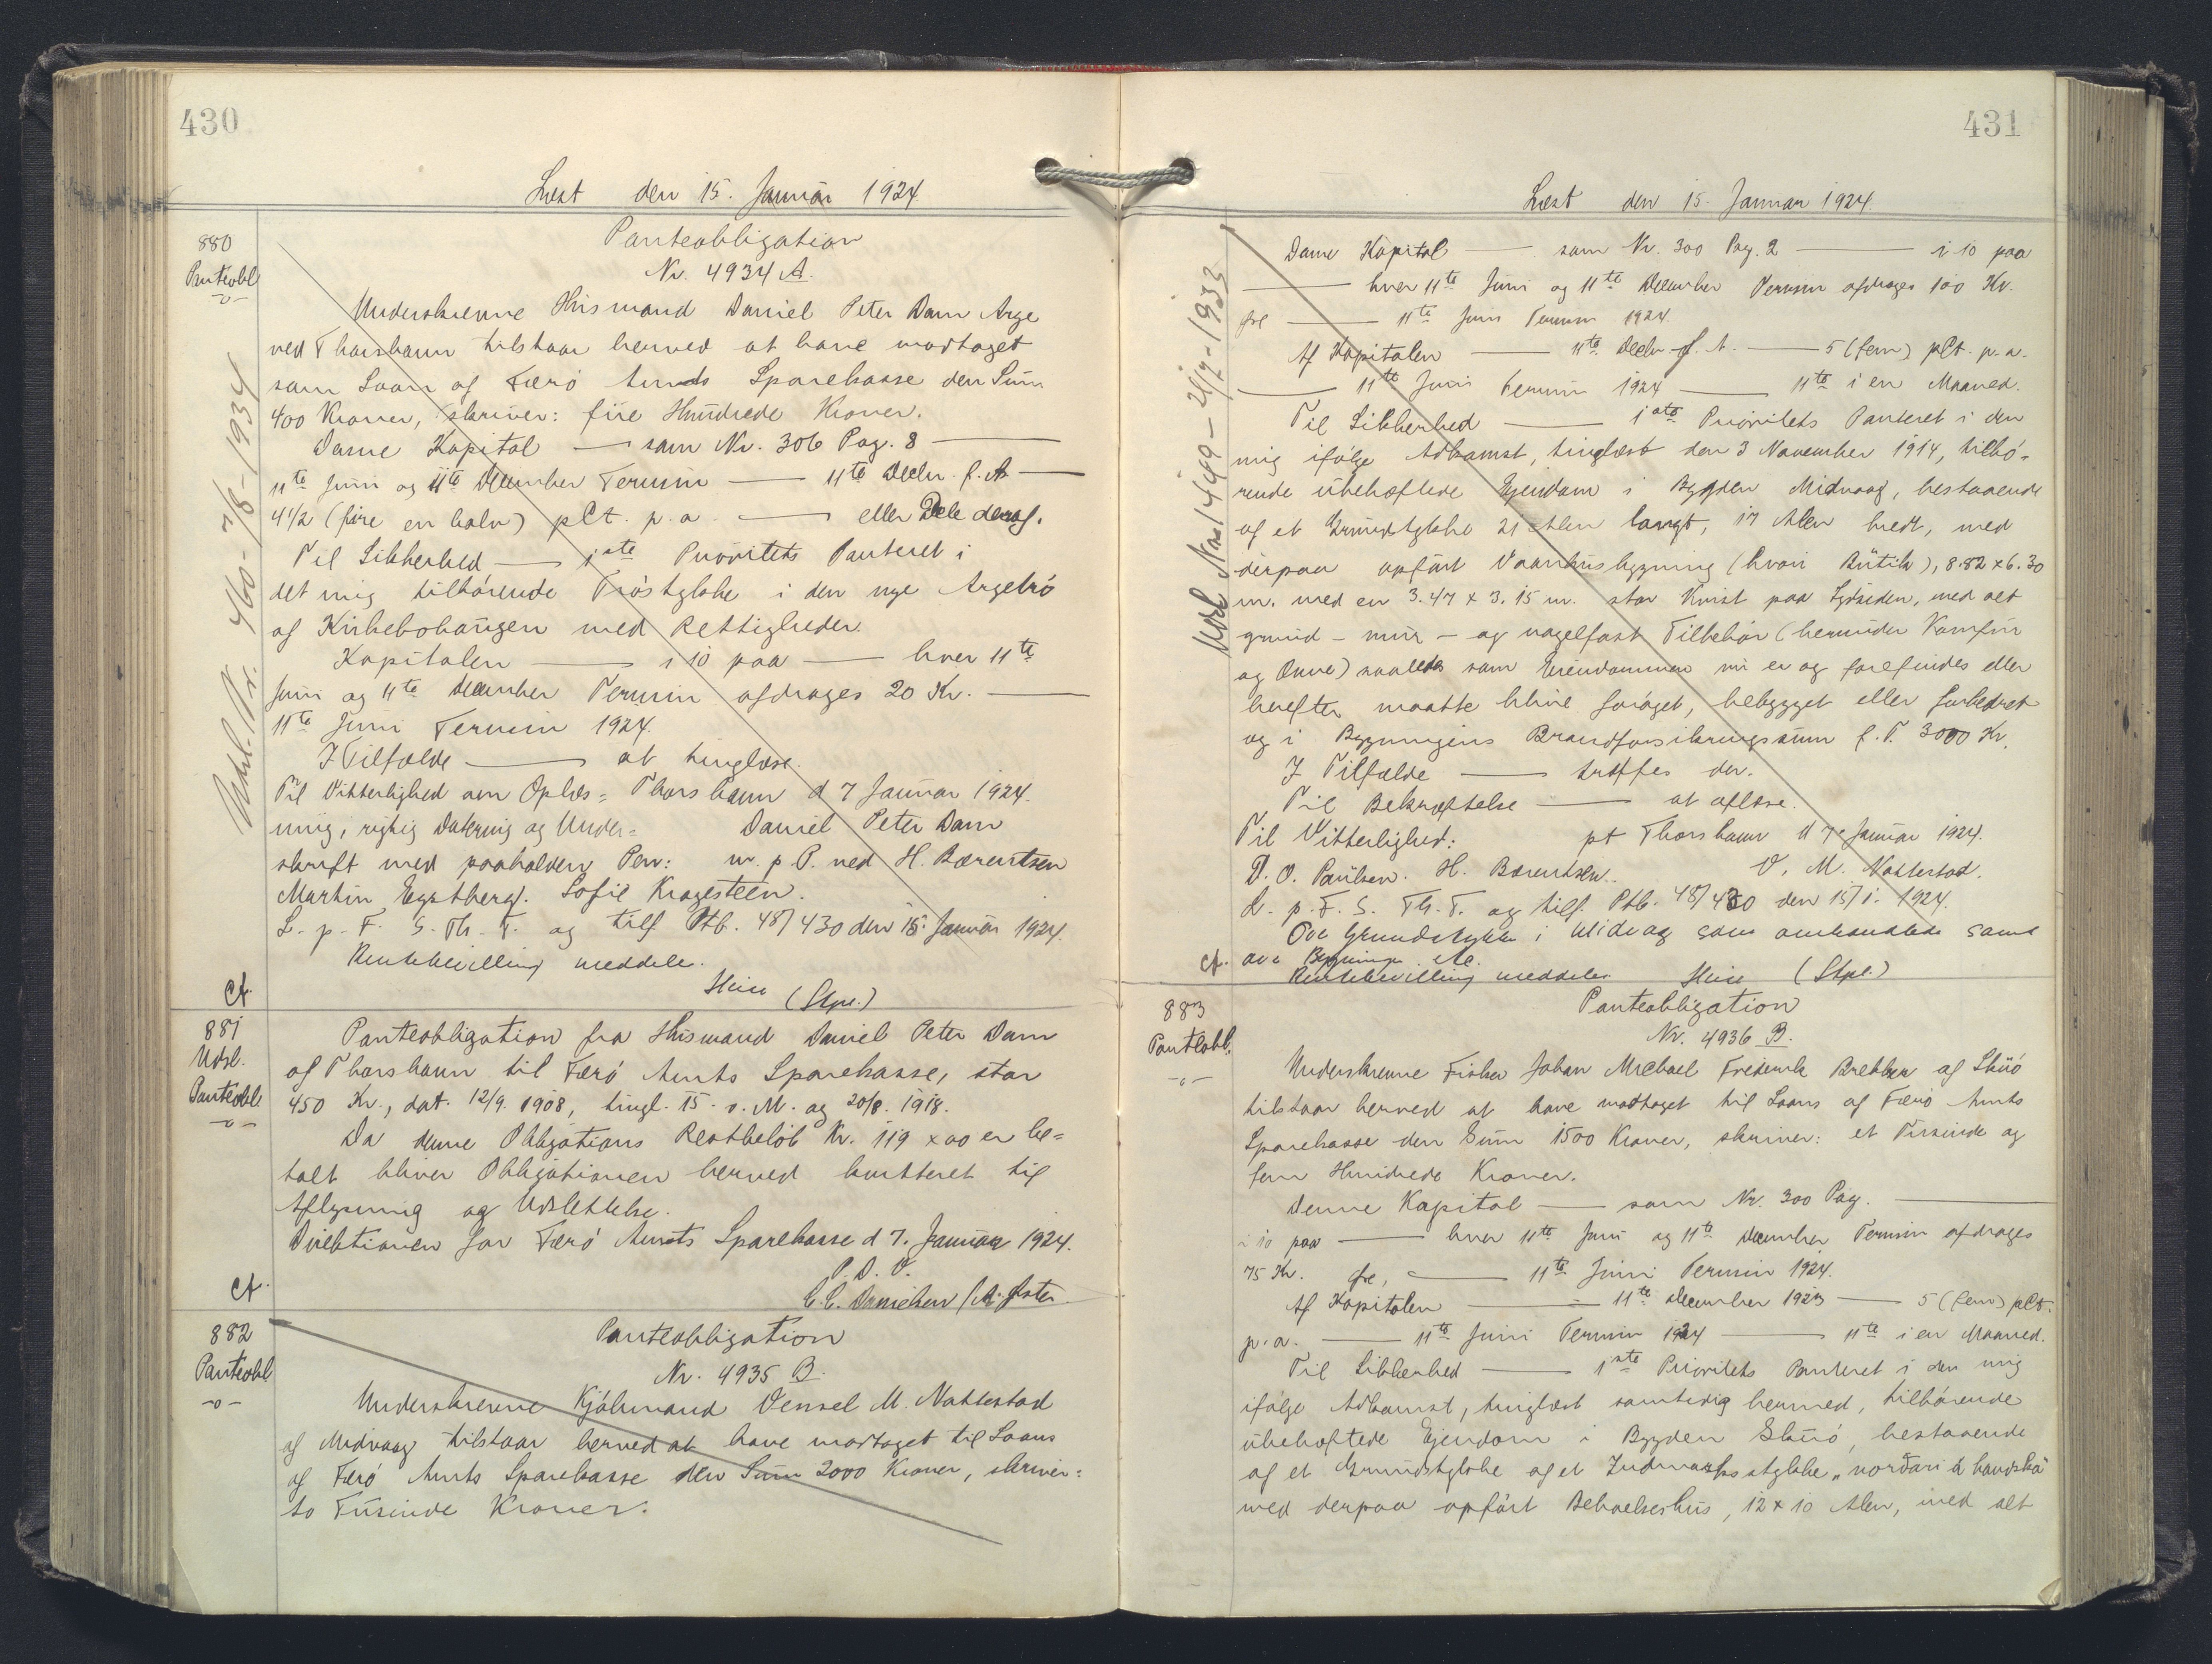 430
Læst den 15. Januar 1924
880
Panteobl
-o-
Udsl. Nr. 460 - 7/8 - 1934
Panteobligation
Nr. 4934 A.
Underskrevne Husmand Daniel Peter Dam Arge
ved Thorshavn tilstaar herved at have modtaget
som Laan af Færø Amts Sparekasse den Sum
400 Kroner, skriver: fire Hundrede Kroner.
Denne Kapital — som Nr. 306 Pag. 8 —
11te Juni og 11te December Termin — 11te Decbr. f. A —
4 1/2 (fire en halv) pCt. p. a. — eller Dele deraf.
Til Sikkerhed — 1ste Prioritets Panteret i
det mig tilhørende Trøstykke i den nye Argetrø
af Kirkebøhaugen med Rettigheder.
Kapitalen — i 10 paa — hver 11te
Juni og 11te December Termin afdrages 20 Kr. —
11te Juni Termin 1924.
I Tilfælde — at tinglæse.
Til Vitterlighed om Oplæs= Thorshavn d 7 Januar 1924.
ning, rigtig Datering og Under= Daniel Peter Dam
skrift med paaholden Pen: m. p. P. ved H. Bærentsen
Martin Egstberg. Sofie Kragesteen.
L. p. F. S. Th. T. og tilf Ptb. 48/430 den 15. Januar 1924.
Rentebevilling meddele.
Cf. (Stpl.)
881
Udsl.
Panteobl
-o-
Panteobligation fra Husmand Daniel Peter Dam
af Thorshavn til Færø Amts Sparekasse, stor
450 Kr., dat. 12/9. 1908, tingl. 15. s. M. og 20/8. 1918.
Da denne Obligations Restbeløb Kr. 119 x 00 er be=
talt bliver Obligationen herved kvitteret til
Aflysning og Udslettelse.
Direktionen for Færø Amts Sparekasse d 7. Januar 1924.
P. D. V.
Cf. C. C. Danielsen / M. Øster
882
Panteobl
-o-
Panteobligation
Nr. 4935 B.
Underskrevne Kjøbmand Vensel M. Nattestad
af Midvaag tilstaar herved at have modtaget til Laans
af Færø Amts Sparekasse den Sum 2000 Kroner, skriver:
to Tusinde Kroner.
431
Læst den 15. Januar 1924.
Udsl Nr. 1449 - 21/7 - 1933
Denne Kapital — som Nr. 300 Pag. 2 — i 10 paa
— hver 11te Juni og 11te December Termin afdrages 100 Kr.
Øre — 11te Juni Termin 1924.
Af Kapitalen — 11te Decbr. f. A. — 5 (fem) pCt. p. a.
— 11te Juni Termin 1924 — 11te i en Maaned.
Til Sikkerhed — 1ste Prioritets Panteret i den
mig ifølge Adkomst, tinglæst den 3 November 1914, tilhø=
rende ubehæftede Ejendom i Bygden Midvaag, bestaaende
af et Grundstykke 21 Alen langt, 17 Alen bredt, med
derpaa opført Vaaningsbygning (hvori Butik), 8.82 x 6.30
m. med en 3.47 x 3.15 m. stor Kvist paa Sydsiden, med alt
grund- mur- og nagelfast Tilbehør (herunder Komfur
og Ovne) saaledes som Ejendommen nu er og forefindes eller
herefter maatte blive forøget, bebygget eller forbedret
og i Bygningens Brandforsikringssum f. T. 3000 Kr.
I Tilfælde — træffes der.
Til Bekræftelse — at aflæse.
Til Vitterlighed: pt Thorshavn d 7. Januar 1924.
D. O. Poulsen. H. Bærentsen. V. M. Nattestad.
L. p. F. S. Th. T. og tilf. Ptb. 48/430 den 15/1. 1924.
Ova Grundstykke i Midvag som omhandlede samt
Cf. ova Bygninger
Rentebevilling meddeles (Stpl.)
883
Panteobl.
-o-
Panteobligation
Nr. 4936 B.
Underskrevne Fisker Johan Michael Frederik Brekken af Skuø
tilstaar herved at have modtaget til Laans af Færø Amts
Sparekasse den Sum 1500 Kroner, skriver: et Tusinde og
fem Hundrede Kroner.
Denne Kapital — som Nr. 300 Pag. —
i 10 paa — hver 11te Juni og 11te December Termin afdrages
75 Kr. Øre, — 11te Juni Termin 1924.
Af Kapitalen — 11te December 1923 — 5 (fem) pCt.
p. a. — 11te Juni Termin 1924 — 11te i en Maaned.
Til Sikkerhed — 1ste Prioritets Panteret i den mig
ifølge Adkomst, tinglæst samtidig hermed, tilhørende
ubehæftede Ejendom i Bygden Skuø, bestaaende
af et Grundstykke af et Indmarksstykke „norðari á handská"
med derpaa opført Beboelseshus, 12 x 10 Alen, med alt